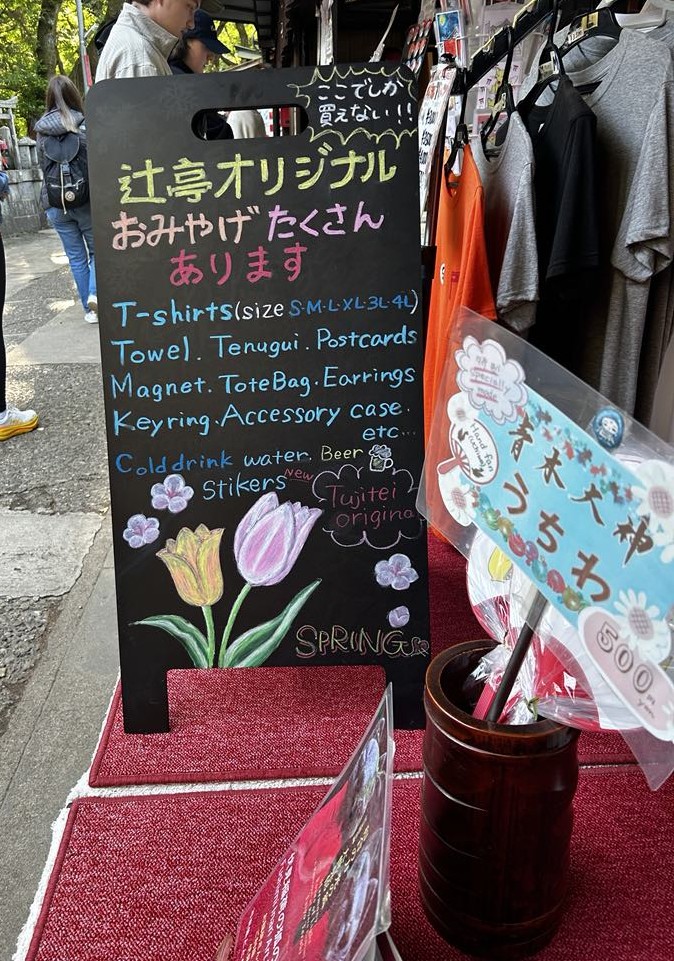 ここでしか
買えない!!
辻亭オリジナル
おみやげ たくさん
あります
T-shirts (size S·M·L·XL·3L·4L)
Towel. Tenugui. Postcards
Magnet. ToteBag. Earrings
Keyring. Accessory case.
etc...
Cold drink water. Beer
Stikers New
Tujitei
original
SPRING
Specially
made
Hand fan
青木大神
うちわ
500
yen